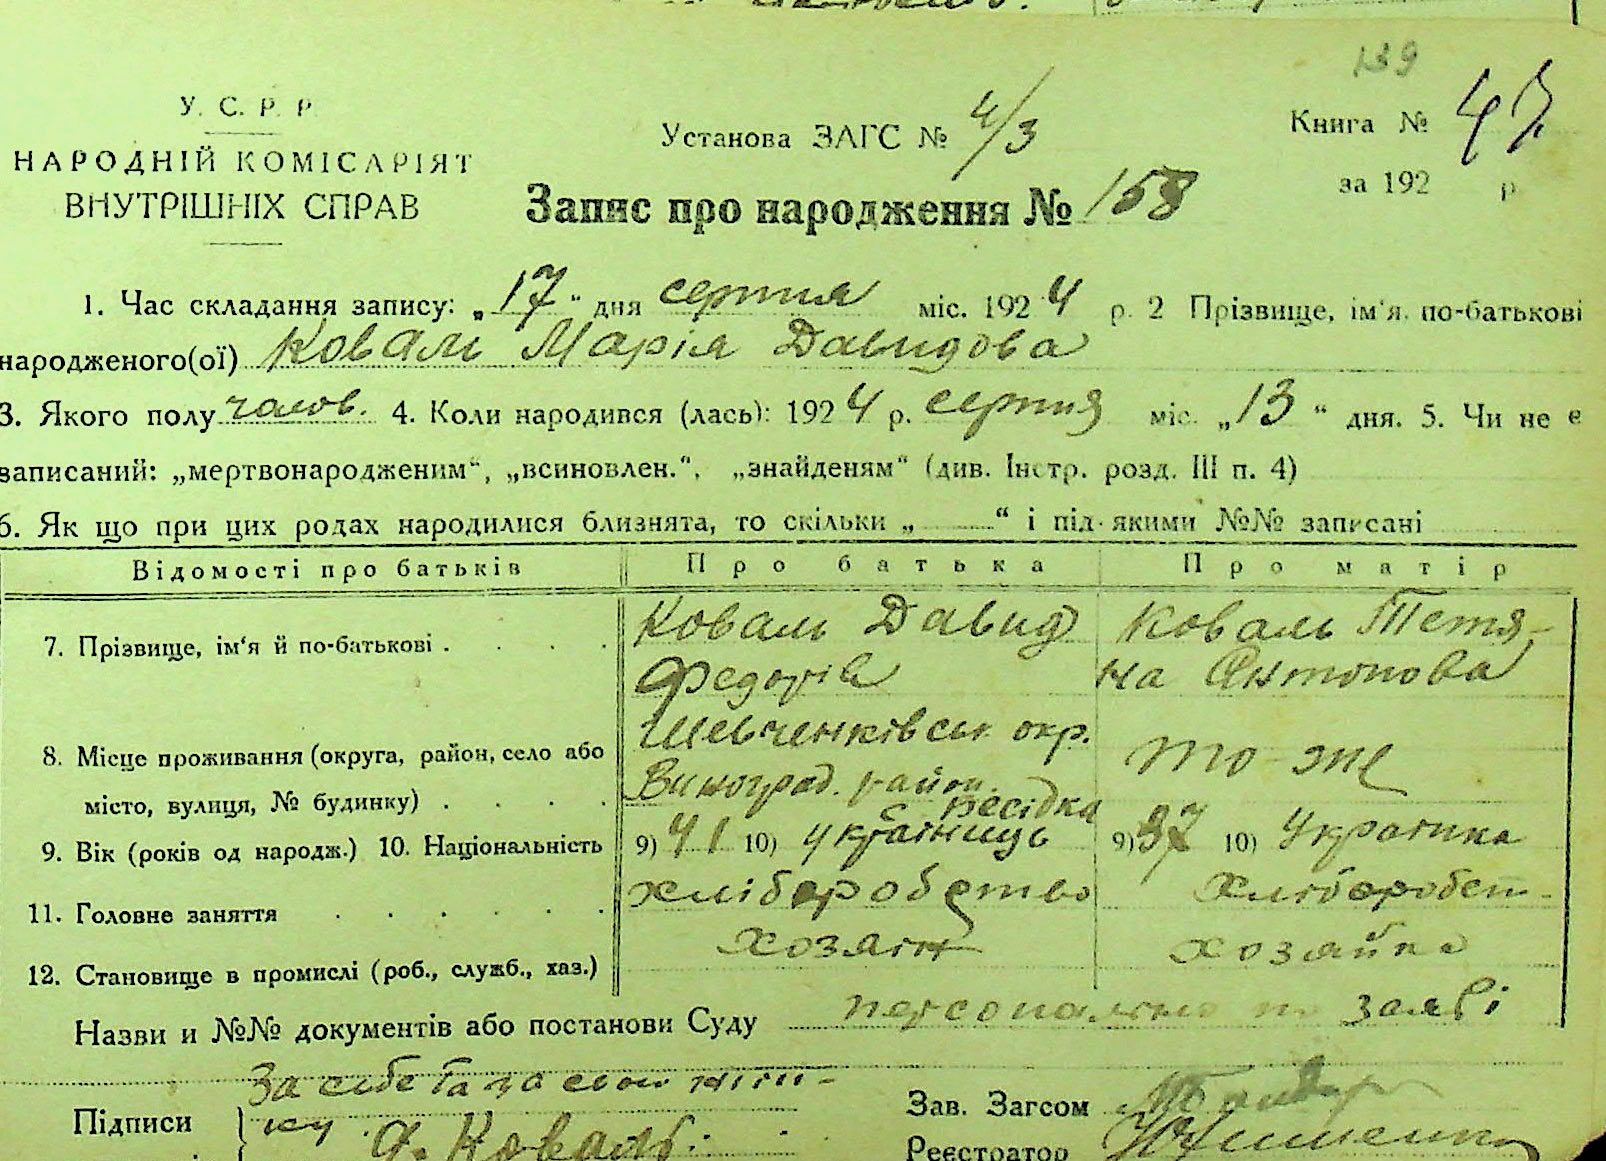 139
У. С. Р. Р.
НАРОДНІЙ КОМІСАРІЯТ
ВНУТРІШНІХ СПРАВ
Установа ЗАГС № 4/3
Книга № 47
за 192 р.
Запис про народження № 158
1. Час складання запису: „17“ дня серпня міс. 1924 р. 2 Прізвище, ім'я, по-батькові
народженого(ої) Коваль Марія Давидова
3. Якого полу 4. Коли народився (лась): 1924 р. серпня міс. „13“ дня. 5. Чи не є
записаний: „мертвонародженим“, „всиновлен.“, „знайденям“ (див. Інстр. розд. III п. 4)
6. Як що при цих родах народилися близнята, то скільки „ “ і під якими №№ записані
Відомості про батьків Про батька Про матір
7. Прізвище, ім'я й по-батькові . . . . Коваль Давид Федорів Коваль Тетяна Антонова
8. Місце проживання (округа, район, село або Шевченківськ. окр. то-же
місто, вулиця, № будинку) . . . . Виноград. район. с
9. Вік (років од народж.) 10. Національність 9) 41 10) українець 9) 37 10) Українка
11. Головне заняття . . . . . хліборобство хліборобст-
12. Становище в промислі (роб., служб., хаз.) хозяін хозяйка
Назви и №№ документів або постанови Суду персонально по заяві
За себе та за свою жін-
Підписи ку Коваль
Зав. Загсом
Реєстратор